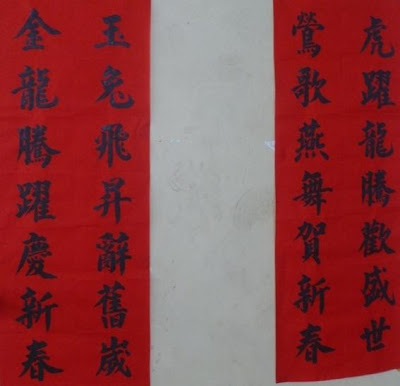 虎躍龍騰歡盛世
鶯歌燕舞賀新春
玉兔飛昇辭舊歲
金龍騰躍慶新春